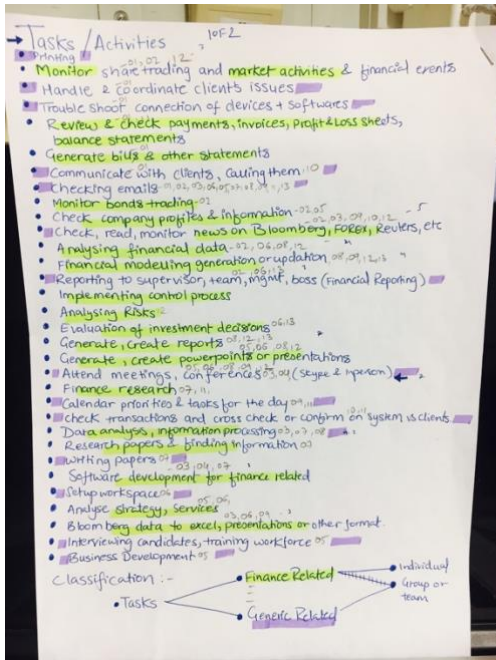 → Tasks / Activities 1 OF 2
• Printing
• Monitor share trading and market activities & financial events
• Handle & coordinate clients issues
• Trouble shoot connection of devices + softwares
• Review & check payments, invoices, Profit & Loss sheets,
balance statements
• Generate bills & other statements
• Communicate with clients, Calling them
• Checking emails
• Monitor bonds trading
• Check company profiles & information
• Check, read, monitor news on Bloomberg, FOREX, Reuters, etc
• Analysing financial data
• Financial modelling generation or updation
• Reporting to supervisor, team, mgmt, boss (Financial Reporting)
• Implementing control process
• Analysing Risks
• Evaluation of investment decisions
• Generate, create reports
• Generate, create powerpoints or presentations
• Attend meetings, conferences (skype & inperson)
• Finance research
• Calendar priorities & tasks for the day
• Check transactions and cross check or confirm on system vs clients
• Data analysis, information processing
• Research papers & finding information
• Writing papers
• Software development for finance related
• Setup workspace
• Analyse strategy, services
• Bloomberg data to excel, presentations or other format
• Interviewing candidates, training workforce
• Business Development
Classification :-
• Tasks
• Finance Related
• Generic Related
• Individual
• Group or
team